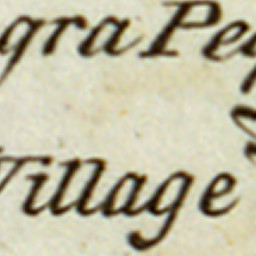 gra Pe
Village